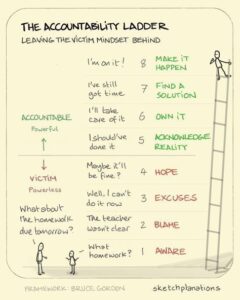 THE ACCOUNTABILITY LADDER
LEAVING THE VICTIM MINDSET BEHIND
I'm on it! 8 MAKE IT HAPPEN
I've still got time 7 FIND A SOLUTION
I'll take care of it 6 OWN IT
I should've done it 5 ACKNOWLEDGE REALITY
ACCOUNTABLE
Powerful
Maybe it'll be fine? 4 HOPE
Well, I can't do it now 3 EXCUSES
The teacher wasn't clear 2 BLAME
What homework? 1 AWARE
VICTIM
Powerless
What about
the homework
due tomorrow?
FRAMEWORK: BRUCE GORDON
sketchplanations